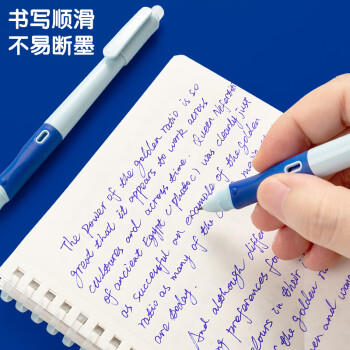 书写顺滑
不易断墨
The Power of the golden ratio is so
great that it appears to work across
cultures and across time. Queen Nefertiti
of ancient Egypt (photo c) was clearly just
as successful an example of the Golden
ratio as many of the
are today.
And although differ
preferences for
colours in their
the golden
and wom